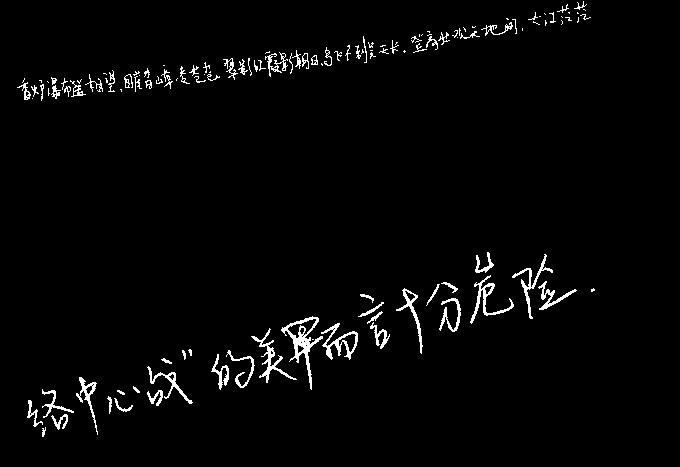 香炉瀑布遥相望,回崖沓嶂凌苍苍。翠影红霞影朝日,鸟飞不到吴天长。登高壮观天地间,大江茫茫
络中心战”的美军而言十分危险.